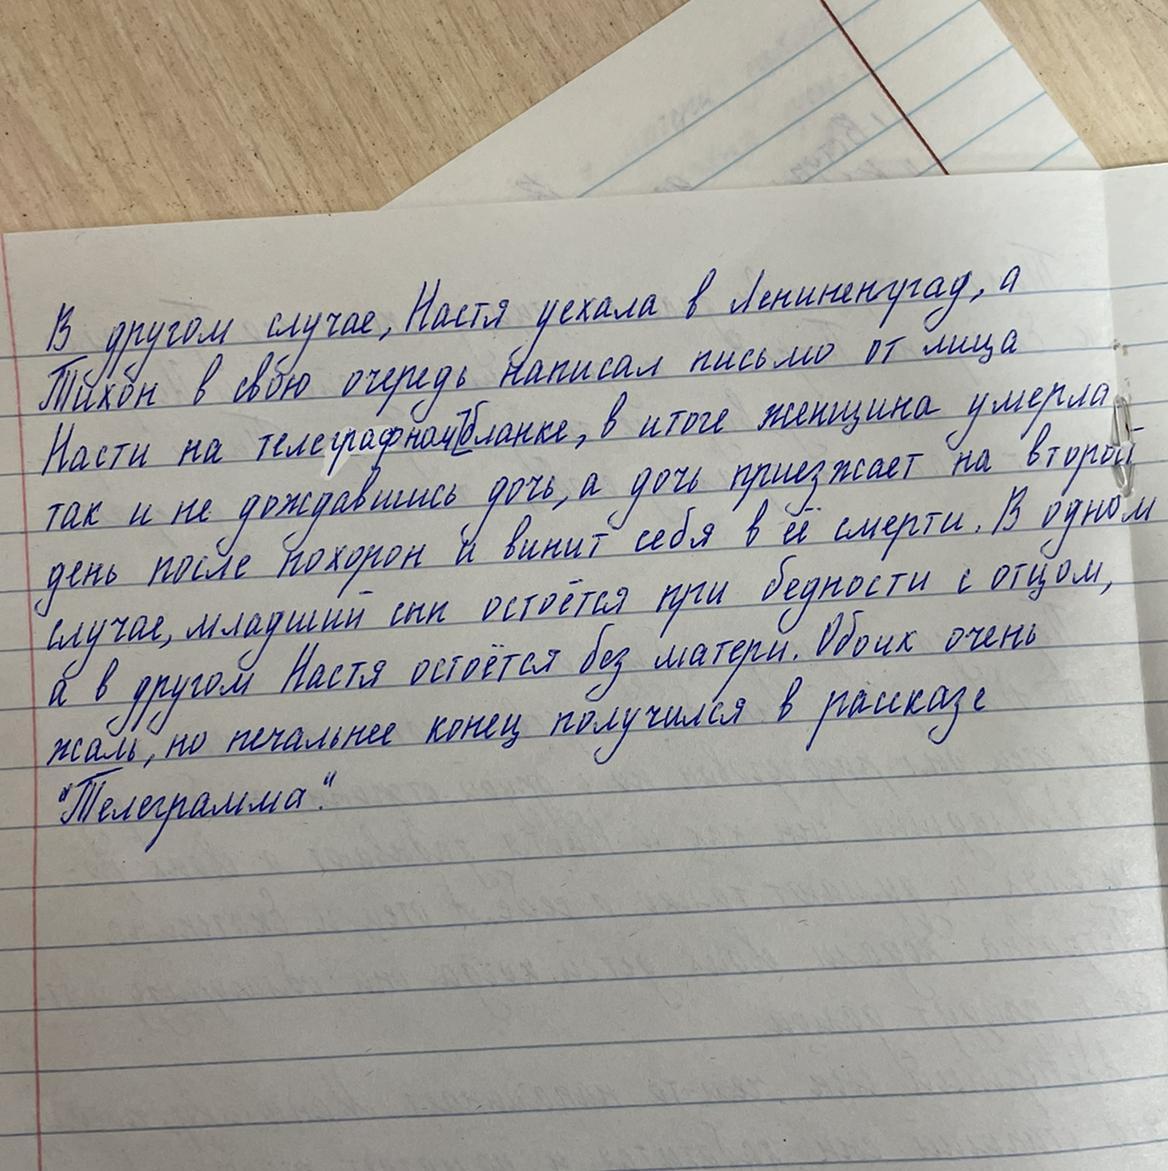 В другом случае, Настя уехала в Лениненград, а
Тихон в свою очередь написал письмо от лица
Насти на телеграфном бланке, в итоге женщина умерла
так и не дождавшись дочь, а дочь приезжает на второй
день после похорон и винит себя в её смерти. В одном
случае, младший сын остоётся при бедности с отцом,
а в другом Настя остоётся без матери. Обоих очень
жаль, но печальнее конец получился в рассказе
"Телеграмма".